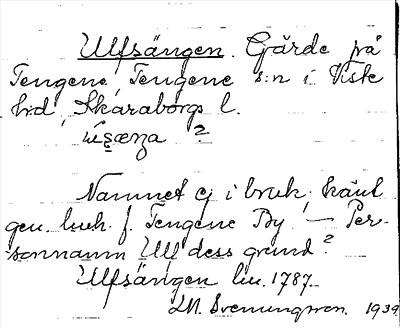 Ulfsängen. Gärde på
Tengene, Tengene s:n i Viste
hd, Skaraborgs l.
?
Namnet ej i bruk, känt
gen. luh. f. Tengene By. — Per-
sonnamn Ulf dess grund?
Ulfsängen lu. 1787.
M. Svenungsson. 1939